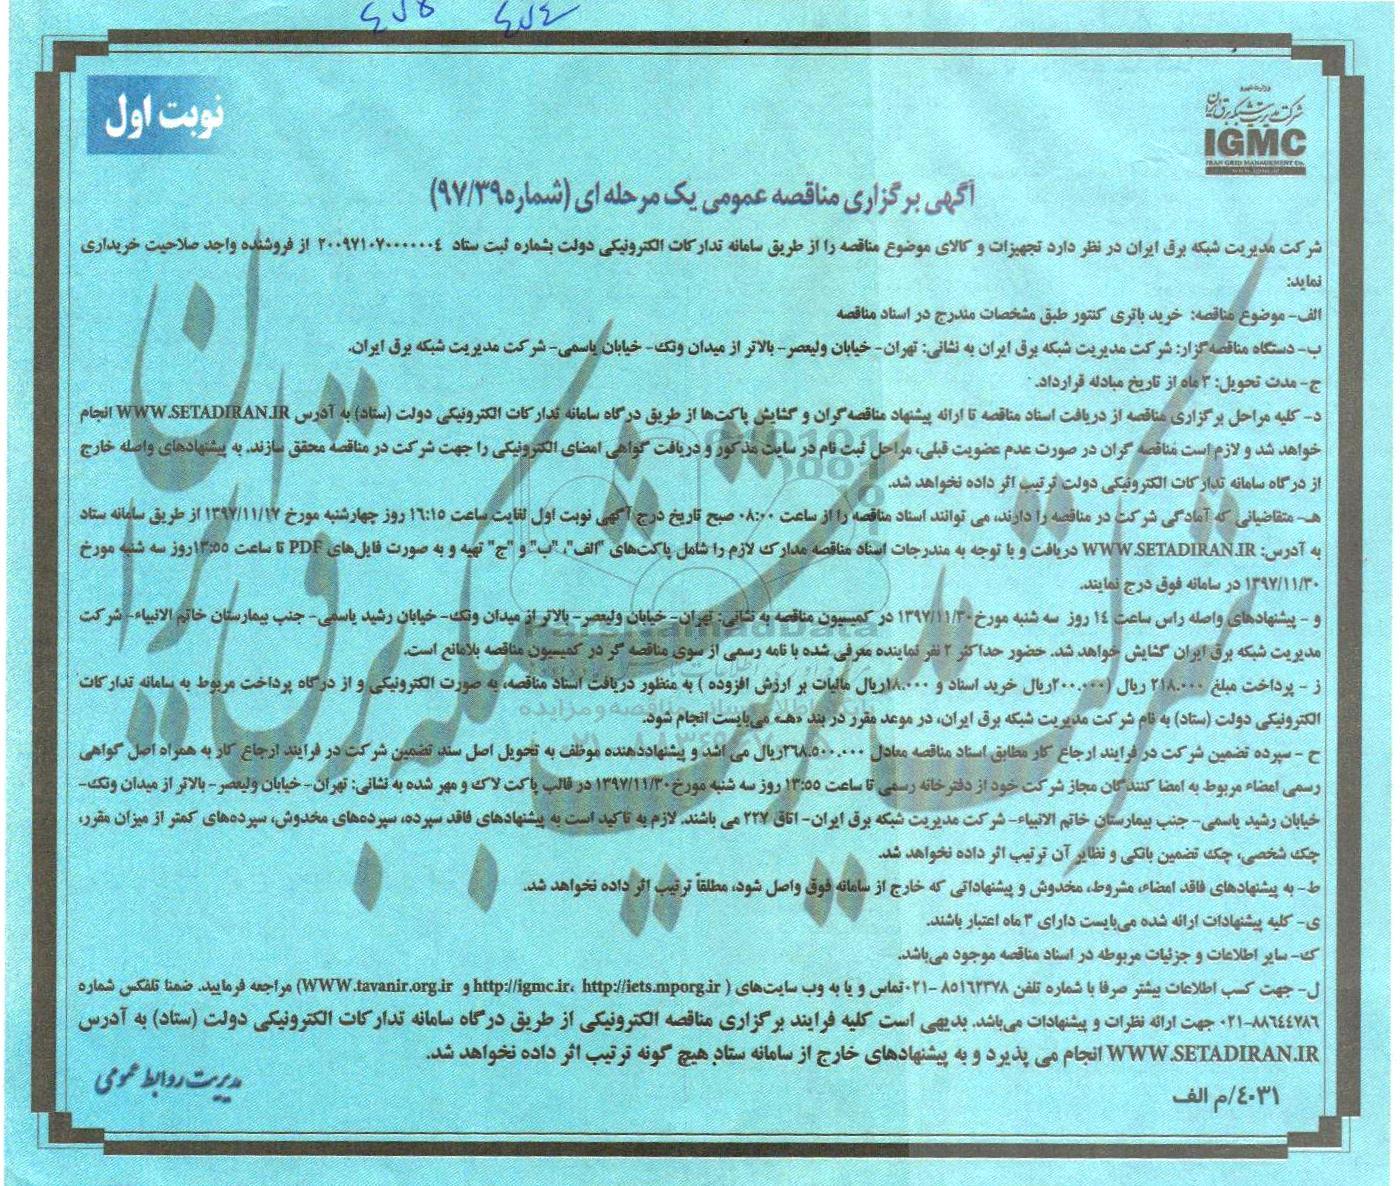 وزارت نیرو
شرکت مدیریت شبکه برق ایران
IGMC
IRAN GRID MANAGEMENT Co.
www.igmc.ir
نوبت اول
آگهی برگزاری مناقصه عمومی یک مرحله ای (شماره۹۷/۳۹)
شرکت مدیریت شبکه برق ایران در نظر دارد تجهیزات و کالای موضوع مناقصه را از طریق سامانه تدارکات الکترونیکی دولت بشماره ثبت ستاد ۲۰۰۹۷۱۰۷۰۰۰۰۰۰۴ از فروشنده واجد صلاحیت خریداری
نماید:
الف- موضوع مناقصه: خرید باتری کنتور طبق مشخصات مندرج در اسناد مناقصه
ب- دستگاه مناقصه گزار: شرکت مدیریت شبکه برق ایران به نشانی: تهران- خیابان ولیعصر- بالاتر از میدان ونک- خیابان یاسمی- شرکت مدیریت شبکه برق ایران.
ج- مدت تحویل: ۳ ماه از تاریخ مبادله قرارداد.
د- کلیه مراحل برگزاری مناقصه از دریافت اسناد مناقصه تا ارائه پیشنهاد مناقصه‌گران و گشایش پاکت‌ها از طریق درگاه سامانه تدارکات الکترونیکی دولت (ستاد) به آدرس WWW.SETADIRAN.IR انجام
خواهد شد و لازم است مناقصه گران در صورت عدم عضویت قبلی، مراحل ثبت نام در سایت مذکور و دریافت گواهی امضای الکترونیکی را جهت شرکت در مناقصه محقق سازند. به پیشنهادهای واصله خارج
از درگاه سامانه تدارکات الکترونیکی دولت ترتیب اثر داده نخواهد شد.
هـ- متقاضیانی که آمادگی شرکت در مناقصه را دارند، می توانند اسناد مناقصه را از ساعت ۰۸:۰۰ صبح تاریخ درج آگهی نوبت اول لغایت ساعت ۱۶:۱۵ روز چهارشنبه مورخ ۱۳۹۷/۱۱/۱۷ از طریق سامانه ستاد
به آدرس: WWW.SETADIRAN.IR دریافت و با توجه به مندرجات اسناد مناقصه مدارک لازم را شامل پاکت‌های "الف"، "ب" و "ج" تهیه و به صورت فایل‌های PDF تا ساعت ۱۳:۵۵روز سه شنبه مورخ
۱۳۹۷/۱۱/۳۰ در سامانه فوق درج نمایند.
و - پیشنهادهای واصله راس ساعت ۱۴ روز سه شنبه مورخ۱۳۹۷/۱۱/۳۰ در کمیسیون مناقصه به نشانی: تهران- خیابان ولیعصر- بالاتر از میدان ونک- خیابان رشید یاسمی- جنب بیمارستان خاتم الانبیاء- شرکت
مدیریت شبکه برق ایران گشایش خواهد شد. حضور حداکثر ۲ نفر نماینده معرفی شده با نامه رسمی از سوی مناقصه گر در کمیسیون مناقصه بلامانع است.
ز - پرداخت مبلغ ۲۱۸.۰۰۰ ریال (۲۰۰.۰۰۰ریال خرید اسناد و ۱۸.۰۰۰ریال مالیات بر ارزش افزوده ) به منظور دریافت اسناد مناقصه، به صورت الکترونیکی و از درگاه پرداخت مربوط به سامانه تدارکات
الکترونیکی دولت (ستاد) به نام شرکت مدیریت شبکه برق ایران، در موعد مقرر در بند «هـ» می‌بایست انجام شود.
ح - سپرده تضمین شرکت در فرایند ارجاع کار مطابق اسناد مناقصه معادل ۲۶۸.۵۰۰.۰۰۰ریال می باشد و پیشنهاددهنده موظف به تحویل اصل سند تضمین شرکت در فرایند ارجاع کار به همراه اصل گواهی
رسمی امضاء مربوط به امضا کنندگان مجاز شرکت خود از دفترخانه رسمی تا ساعت ۱۳:۵۵ روز سه شنبه مورخ۱۳۹۷/۱۱/۳۰ در قالب پاکت لاک و مهر شده به نشانی: تهران- خیابان ولیعصر- بالاتر از میدان ونک-
خیابان رشید یاسمی- جنب بیمارستان خاتم الانبیاء- شرکت مدیریت شبکه برق ایران- اتاق ۲۲۷ می باشند. لازم به تاکید است به پیشنهادهای فاقد سپرده، سپرده‌های مخدوش، سپرده‌های کمتر از میزان مقرر،
چک شخصی، چک تضمین بانکی و نظایر آن ترتیب اثر داده نخواهد شد.
ط- به پیشنهادهای فاقد امضاء، مشروط، مخدوش و پیشنهاداتی که خارج از سامانه فوق واصل شود، مطلقاً ترتیب اثر داده نخواهد شد.
ی- کلیه پیشنهادات ارائه شده می‌بایست دارای ۳ ماه اعتبار باشند.
ک- سایر اطلاعات و جزئیات مربوطه در اسناد مناقصه موجود می‌باشد.
ل- جهت کسب اطلاعات بیشتر صرفا با شماره تلفن ۸۵۱۶۲۳۷۸ -۰۲۱تماس و یا به وب سایت‌های ( http://igmc.ir، http://iets.mporg.ir و WWW.tavanir.org.ir) مراجعه فرمایید. ضمنا تلفکس شماره
۸۸۶۴۴۷۸۶-۰۲۱ جهت ارائه نظرات و پیشنهادات می‌باشد. بدیهی است کلیه فرایند برگزاری مناقصه الکترونیکی از طریق درگاه سامانه تدارکات الکترونیکی دولت (ستاد) به آدرس
WWW.SETADIRAN.IR انجام می پذیرد و به پیشنهادهای خارج از سامانه ستاد هیچ گونه ترتیب اثر داده نخواهد شد.
مدیریت روابط عمومی
۴۰۳۱/م الف